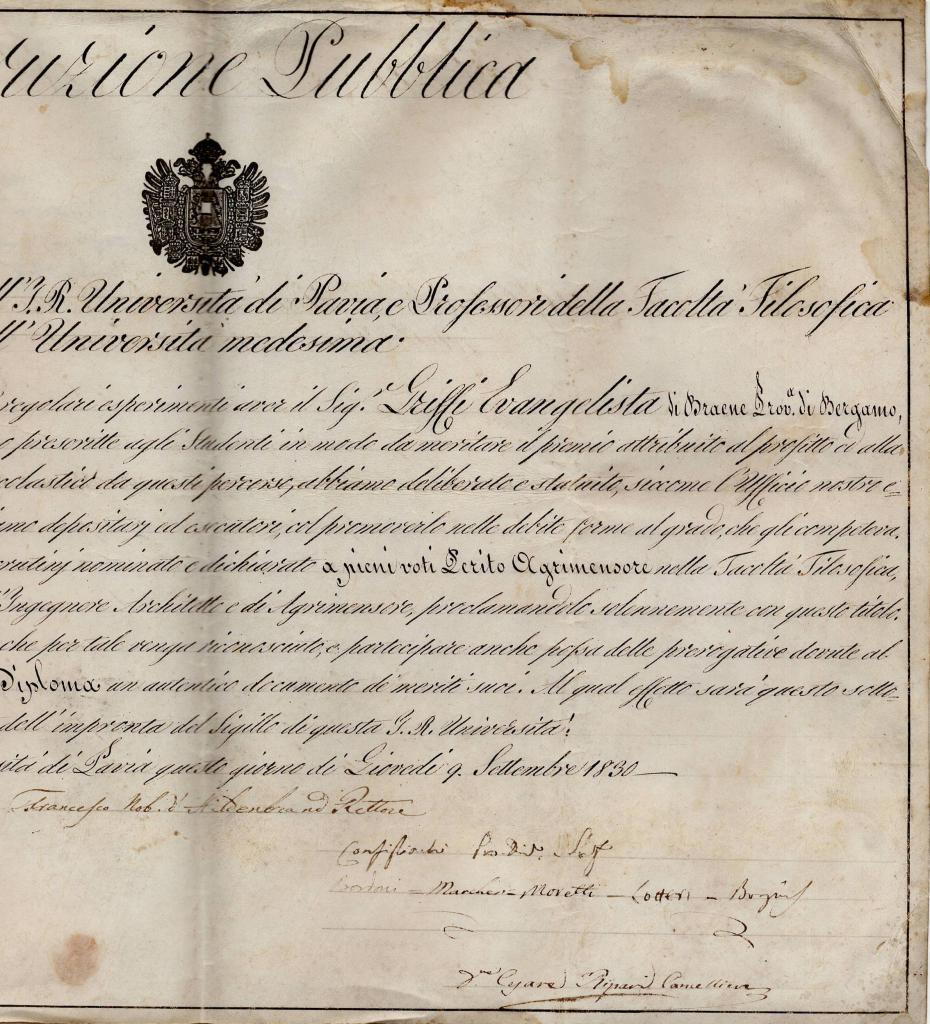 uzione Pubblica
ll'I. R. Università di Pavia, e Professori della Facoltà Filosofica
ll'Università medesima.
regolari esperimenti aver il Sig.r Griffi Evangelista di Braene Prov.a di Bergamo,
o prescritte agli Studenti in modo da meritare il premio attribuito al profitto ed alla
colastico da questi percorso, abbiamo deliberato e statuito, siccome l'Ufficio nostro e-
amo depositarj ed esecutori, col promoverlo nelle debite forme al grado, che gli competeva.
crutinj nominato e dichiarato a pieni voti Perito Agrimensore nella Facoltà Filosofica,
Ingegnere Architetto e di Agrimensore, proclamandolo solennemente con questo titolo.
che per tale venga riconosciuto, e partecipare anche possa delle prerogative dovute al
Diploma un autentico documento de' meriti suoi. Al qual effetto sarà questo sotto-
dell'impronta del Sigillo di questa I. R. Università.
sità di Pavia questo giorno di Giovedì 9. Settembre 1830
Francesco Nob. d' Hildenbrand Rettore
Configliachi Pro Dir.
Bordoni = Marcheri = Moretti - Lotteri -
Cesare Ripari Cancelliere